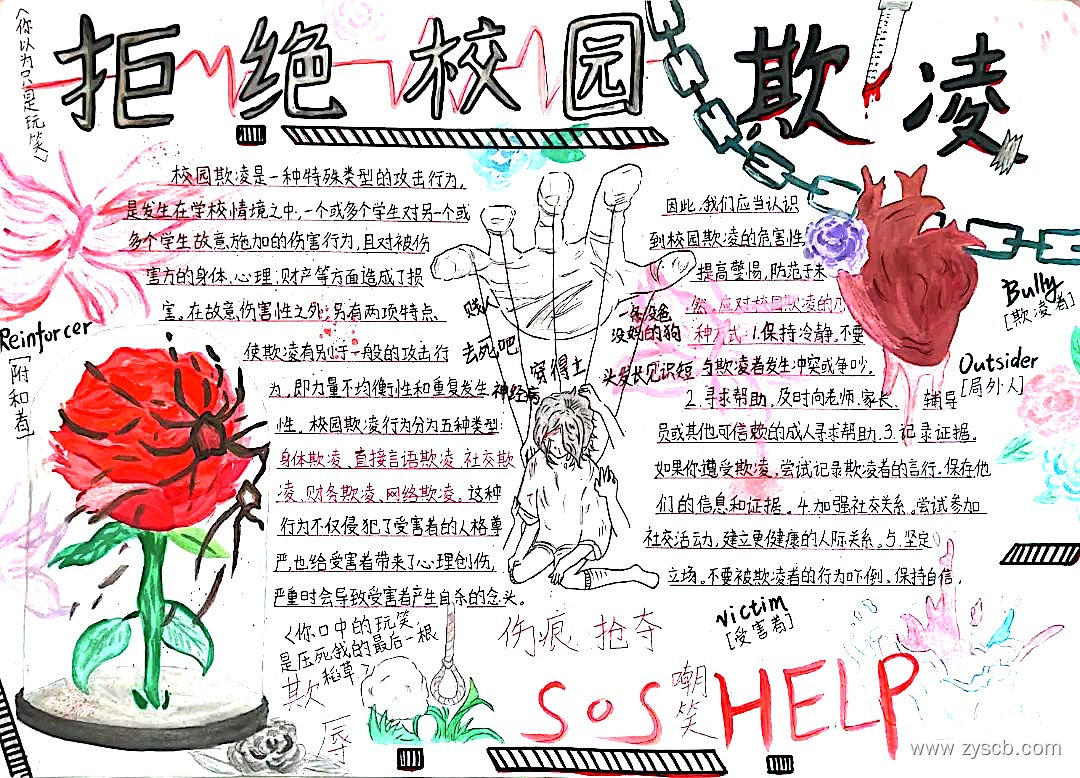 拒绝校园欺凌
〈你以为只是玩笑〉
校园欺凌是一种特殊类型的攻击行为,
是发生在学校情境之中,一个或多个学生对另一个或
多个学生故意施加的伤害行为,且对被伤
害方的身体、心理、财产等方面造成了损
害。在故意伤害性之外,另有两项特点,
使欺凌有别于一般的攻击行
为,即力量不均衡性和重复发生
性。校园欺凌行为分为五种类型:
身体欺凌、直接言语欺凌、社交欺
凌、财务欺凌、网络欺凌。这种
行为不仅侵犯了受害者的人格尊
严,也给受害者带来了心理创伤,
严重时会导致受害者产生自杀的念头。
Reinforcer
[附和者]
贱人
去死吧
神经病
穿得土
没妈的狗
头发长见识短
因此,我们应当认识
到校园欺凌的危害性,
提高警惕,防范于未
然,应对校园欺凌的几
种方式:1.保持冷静,不要
与欺凌者发生冲突或争吵。
2.寻求帮助,及时向老师、家长、辅导
员或其他可信赖的成人寻求帮助。3.记录证据。
如果你遭受欺凌,尝试记录欺凌者的言行,保存他
们的信息和证据。4.加强社交关系。尝试参加
社交活动,建立更健康的人际关系。5.坚定
立场。不要被欺凌者的行为吓倒,保持自信。
Bully
[欺凌者]
Outsider
[局外人]
victim
[受害者]
〈你口中的玩笑
是压死我的最后一根
稻草〉
欺
辱
伤痕 抢夺
嘲
笑
SOS HELP
www.zyscb.com